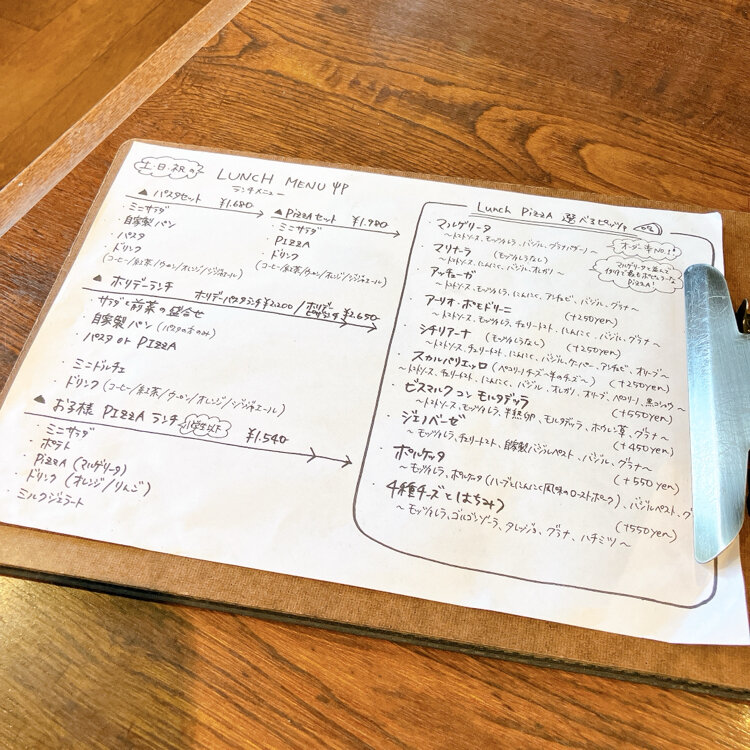 土・日・祝の
LUNCH MENU
ランチメニュー
▲ パスタセット ¥1.680
・ミニサラダ
・自家製パン
・パスタ
・ドリンク
(コーヒー/紅茶/ウーロン/オレンジ/ジンジャエール)
▲ PIZZAセット ¥1.980
・ミニサラダ
・PIZZA
・ドリンク
(コーヒー/紅茶/ウーロン/オレンジ/ジンジャエール)
▲ ホリデーランチ ホリデーパスタランチ ¥2.200 / ホリデーピッツァランチ ¥2.650
・サラダと前菜の盛合せ
・自家製パン (パスタの方のみ)
・パスタ or PIZZA
・ミニドルチェ
・ドリンク (コーヒー/紅茶/ウーロン/オレンジ/ジンジャエール)
▲ お子様 PIZZA ランチ 小学生以下 ¥1.540
・ミニサラダ
・ポテト
・PIZZA (マルゲリータ)
・ドリンク (オレンジ/りんご)
・ミルクジェラート
Lunch PIZZA 選べるピッツァ
・マルゲリータ
〜トマトソース、モッツァレラ、バジル、グラナパダーノ〜
オーダー率NO.1!
・マリナーラ (モッツァレラなし)
〜トマトソース、にんにく、バジル、オレガノ〜
マルゲリータと並んで
PIZZA!
・アッチューガ
〜トマトソース、モッツァレラ、にんにく、アンチョビ、バジル、グラナ〜
・アーリオ・ポモドリーニ (+250yen)
〜トマトソース、モッツァレラ、チェリートマト、にんにく、バジル、グラナ〜
・シチリアーナ (モッツァレラなし) (+250yen)
〜トマトソース、チェリートマト、にんにく、バジル、ケーパー、アンチョビ、オリーブ〜
・スカルパリエッロ (ペコリーノチーズ〜羊のチーズ〜) (+250yen)
〜トマトソース、チェリートマト、にんにく、バジル、オレガノ、オリーブ、ペコリーノ、黒コショウ〜
・ビスマルク コン モルタデッラ (+550yen)
〜トマトソース、モッツァレラ、半熟卵、モルタデッラ、ホウレン草、グラナ〜
・ジェノベーゼ (+450yen)
〜モッツァレラ、チェリートマト、自家製バジルペスト、バジル、グラナ〜
・ポルケッタ (+550yen)
〜モッツァレラ、ポルケッタ(ハーブとにんにく風味のローストポーク)、バジルペスト、グ
・4種チーズとはちみつ (+550yen)
〜モッツァレラ、ゴルゴンゾーラ、タレッジョ、グラナ、ハチミツ〜